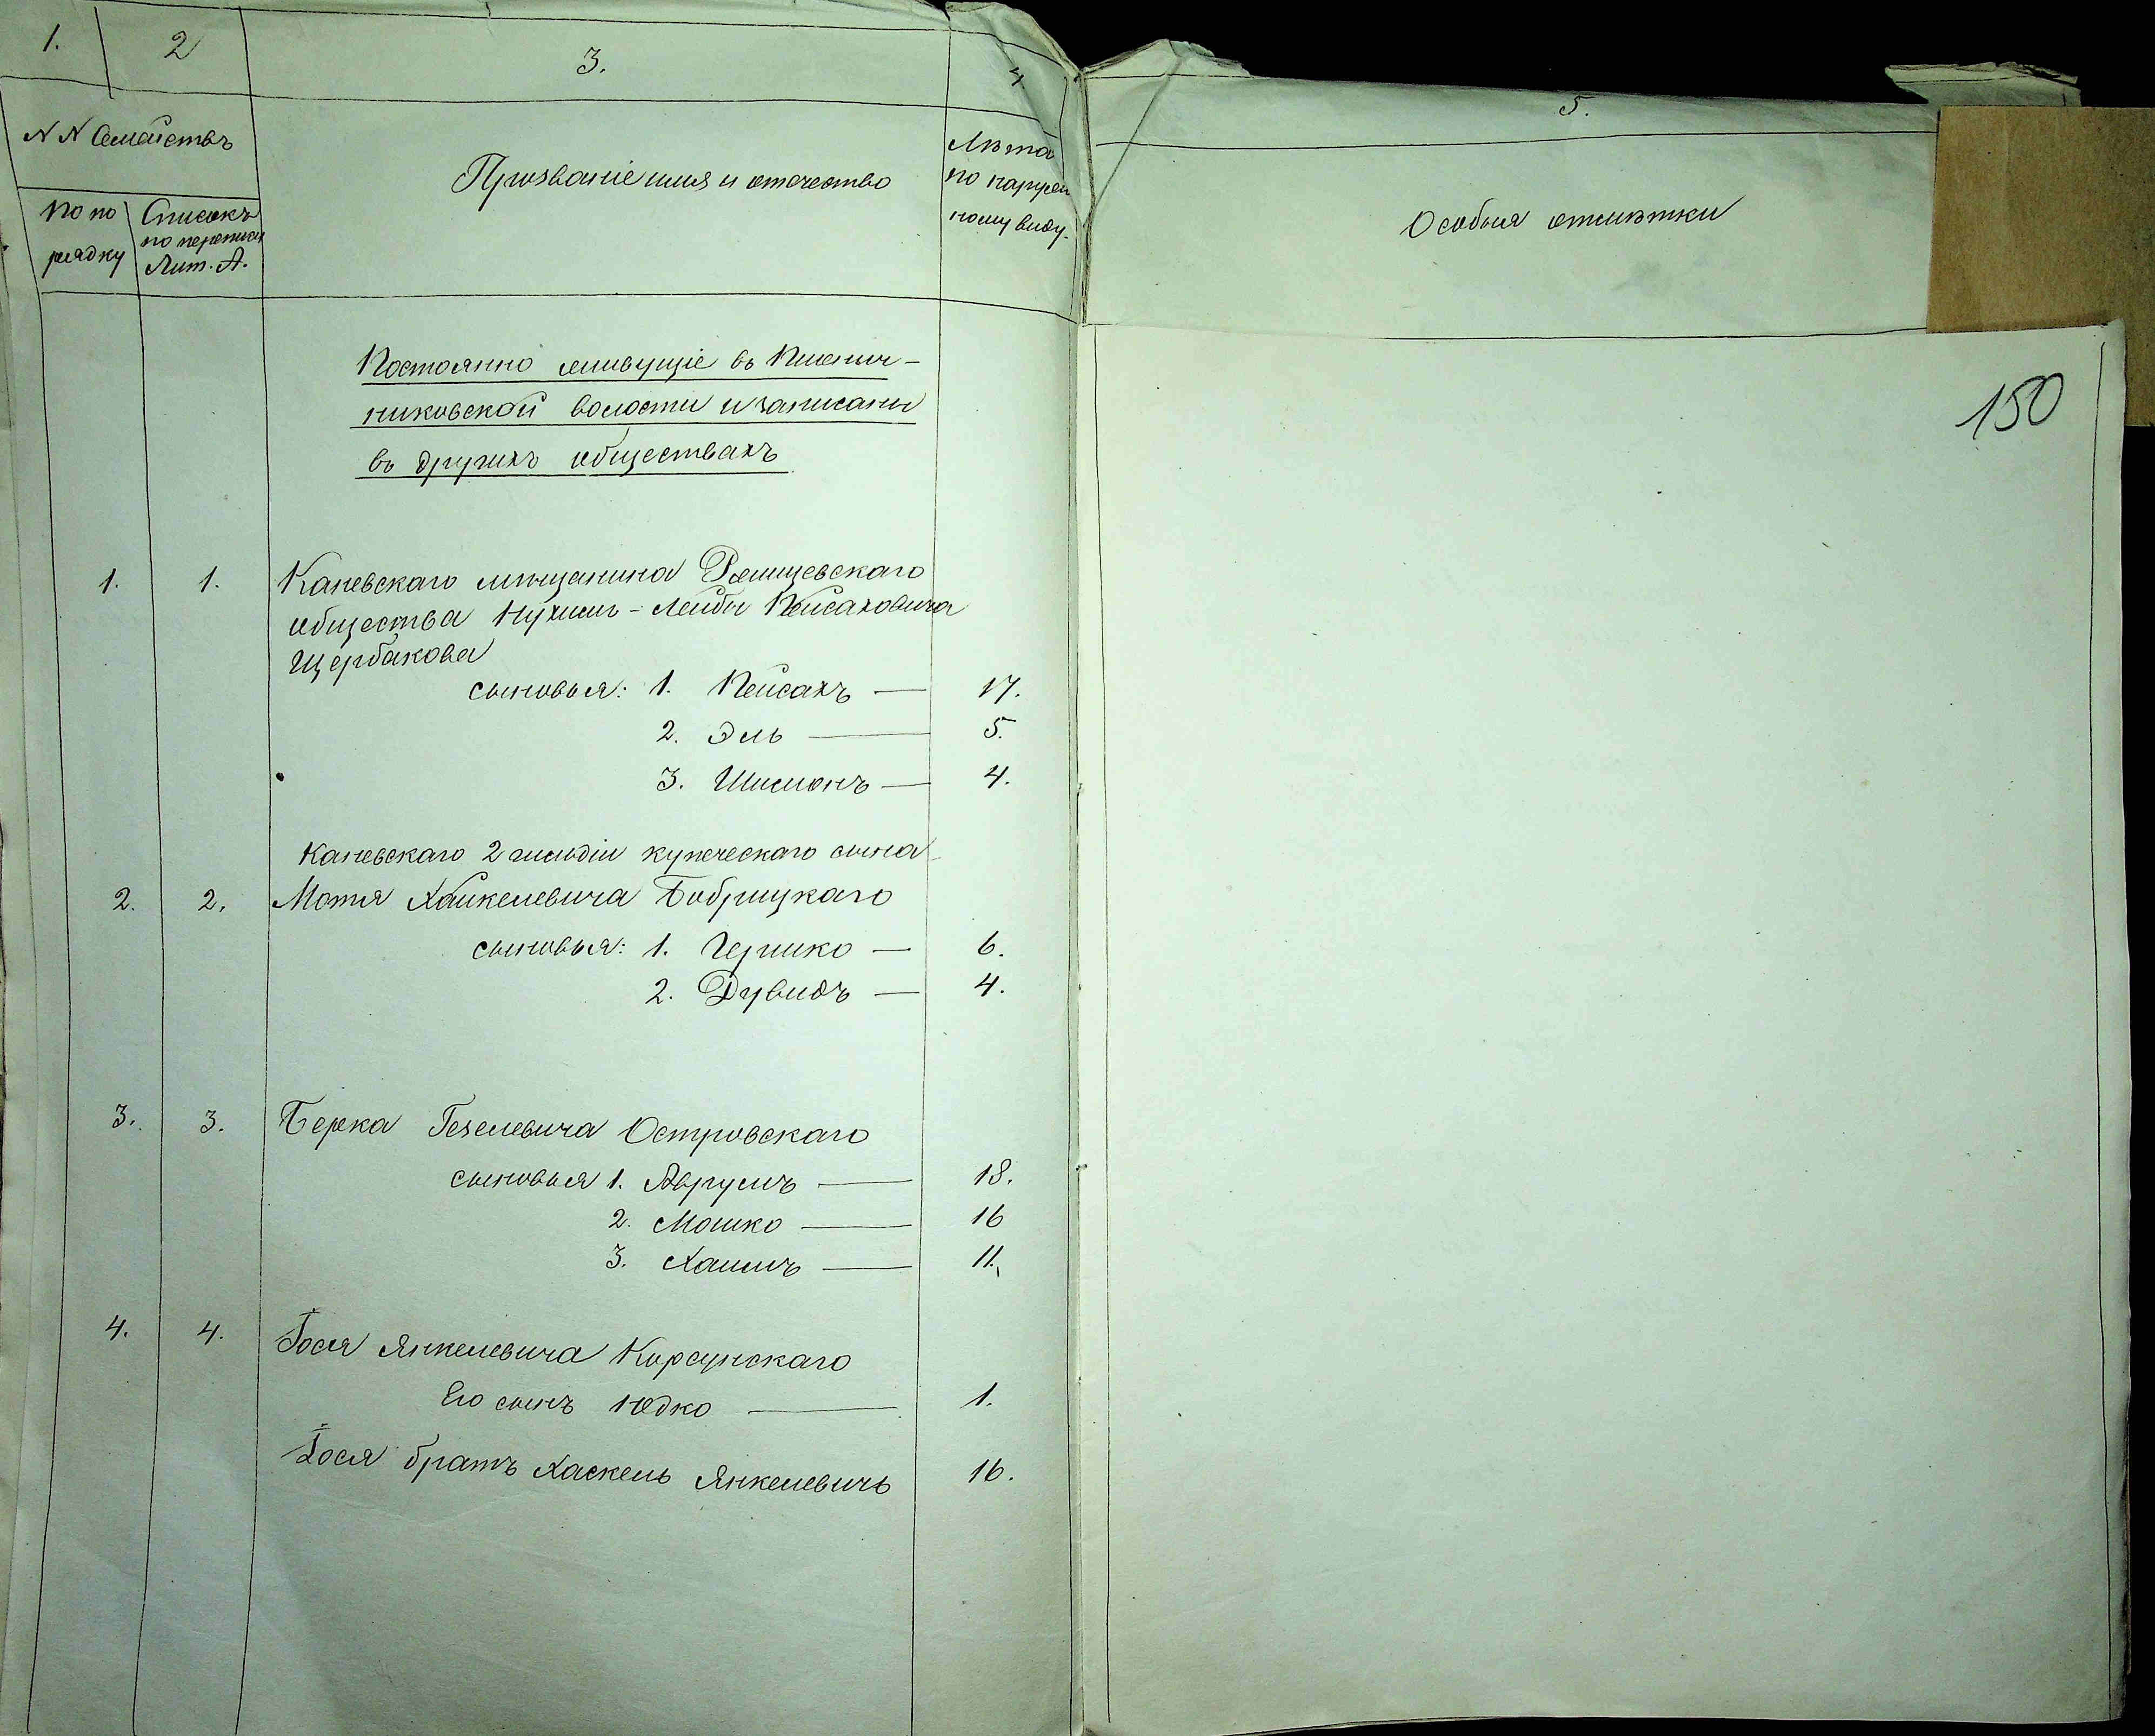 1.
2
3.
4
5.
N N Семействъ
По по
рядку
Списокъ
по переписи
Лит. А.
Прозваніе имя и отечество
Лѣта
по наружн
ному виду.
Особыя отмѣтки
150
Постоянно живущіе въ Пшенич-
никовской волости и записаны
въ другихъ обществахъ
1. 1. Каневскаго мѣщанина Ржищевскаго
общества Нухимъ-Лейбы Пейсаховича
Щербакова
сыновья: 1. Пейсахъ — 17.
2. Эль — 5.
3. Шимонъ — 4.
Каневскаго 2 гильдіи купеческаго сына
2. 2. Мотя Хайкелевича Бобрицкаго
сыновья: 1. Гершко — 6.
2. Дувидъ — 4.
3. 3. Берка Гезелевича Островскаго
сыновья 1. Аврумъ — 18.
2. Мошко — 16
3. Хаимъ — 11.
4. 4. Іося Янкелевича Корсунскаго
Его сынъ Юдко — 1.
Іося братъ Хаскель Янкелевичъ 16.